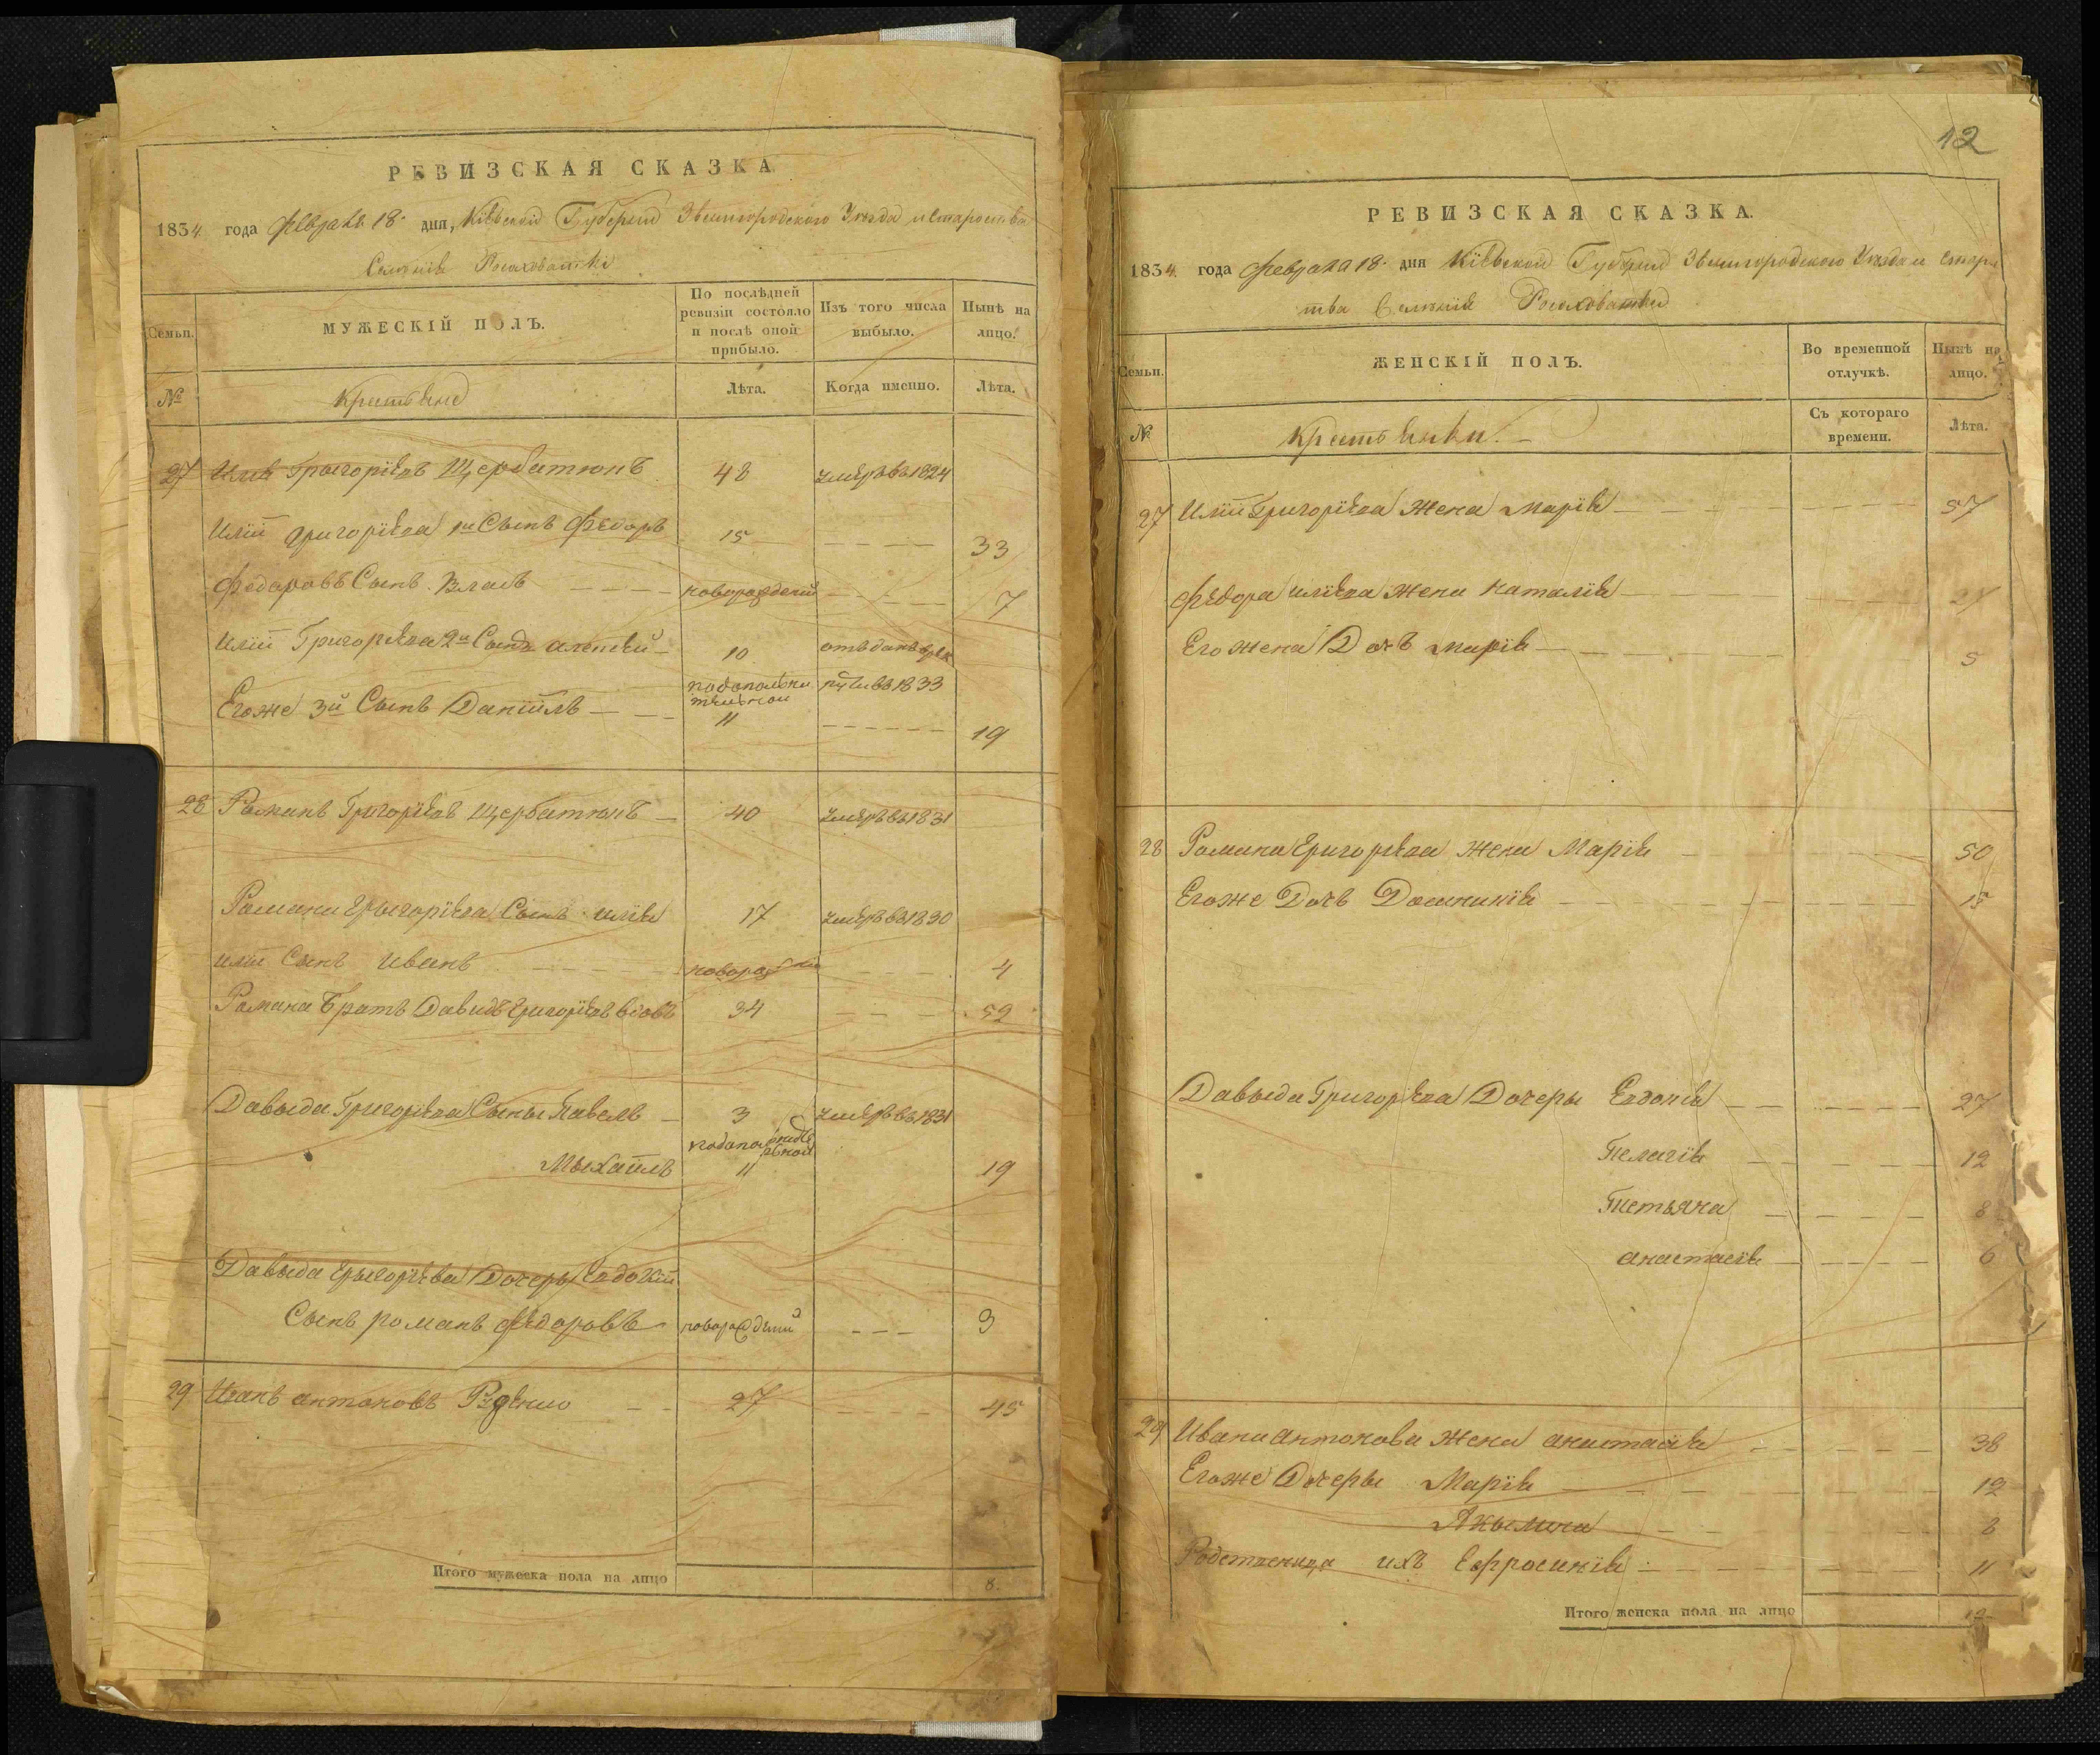 РЕВИЗСКАЯ СКАЗКА
1834 года Февраля 18 дня, Кіевской Губерніи Звенигородского Уезда и Староства
Селенія Росоховатки
Семьи.
МУЖЕСКІЙ ПОЛЪ.
По послѣдней ревизіи состояло и послѣ оной прибыло.
Изъ того числа выбыло.
Нынѣ на лицо.
№
Крестьяне
Лѣта.
Когда именно.
Лѣта.
27 Илия Григоріевъ Щербатюкъ 48 умеръ въ 1824
Иліи Григоріева 1й Сынъ Федоръ 15 33
Федоровъ Сынъ Власъ новорожденный 7
Иліи Григоріева 2й Сынъ Алексей 10 отъданъ врек
Егоже 3й Сынъ Даніилъ 11 19
руты въ 1833
28 Романъ Григоріевъ Щербатюкъ 40 умеръ въ 1831
Романа Григоріева Сынъ илія 17 умеръ въ 1830
иліи Сынъ Иванъ 4
Романа Братъ Давидъ Григоріевъ вдовъ 34 52
Давыда Григоріева Сыны Павелъ 3 умеръ въ 1831
Мыхаилъ 11 19
Давыда Григоріева Дочеры Евдокіи
Сынъ романъ федоровъ новорожденый 3
29 Иванъ антоновъ 27 45
Итого мужеска пола на лицо 8.
12
РЕВИЗСКАЯ СКАЗКА.
1834 года Февраля 18 дня Кіевской Губерніи Звенигородского Уезда и Старос
тва Селенія Росоховатки
Семьи.
ЖЕНСКІЙ ПОЛЪ.
Во временной отлучкѣ.
Нынѣ на лицо.
№
Крестьянки.
Съ котораго времени.
Лѣта.
27 Иліи Григоріева Жена Марія 57
Федора иліева Жена Наталія 27
Его жена Дочъ Марія 5
28 Романа Григоріева Жена Марія 50
Егоже Дочъ Доминикія 15
Давыда Григоріева Дочеры Евдокія 27
Пелагія 12
Тетьяна 8
анастасія 6
29 Ивана Антонова Жена анастасія 38
Егоже Дочеры Марія 12
Акылина 8
Родственица ихъ Ефросинія 11
Итого женска пола на лицо 12